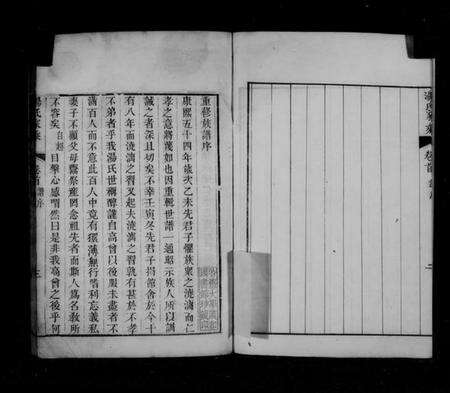 湯氏家乘 卷首
重修族譜序
康熙五十四年歲次乙未先君子懼族衆之澆漓而仁
孝之意將蔑如也因重輯世譜一通昭示族人所以訓
誡之者深且切矣不幸壬寅冬先君子捐館舍於今十
有八年而澆漓之習又起夫澆漓之習孰有甚於不孝
不弟者乎我湯氏世稱醇謹自高曾以後服未盡者不
滿百人而不意此百人中竟有儇薄無行嗜利忘義私
妻子不顧父母靡祭產罔念祖先者而斯人爲名敎所
不容矣 目擊心感喟然曰是非我高曾之後乎何
湯氏家乘 卷首 譜序